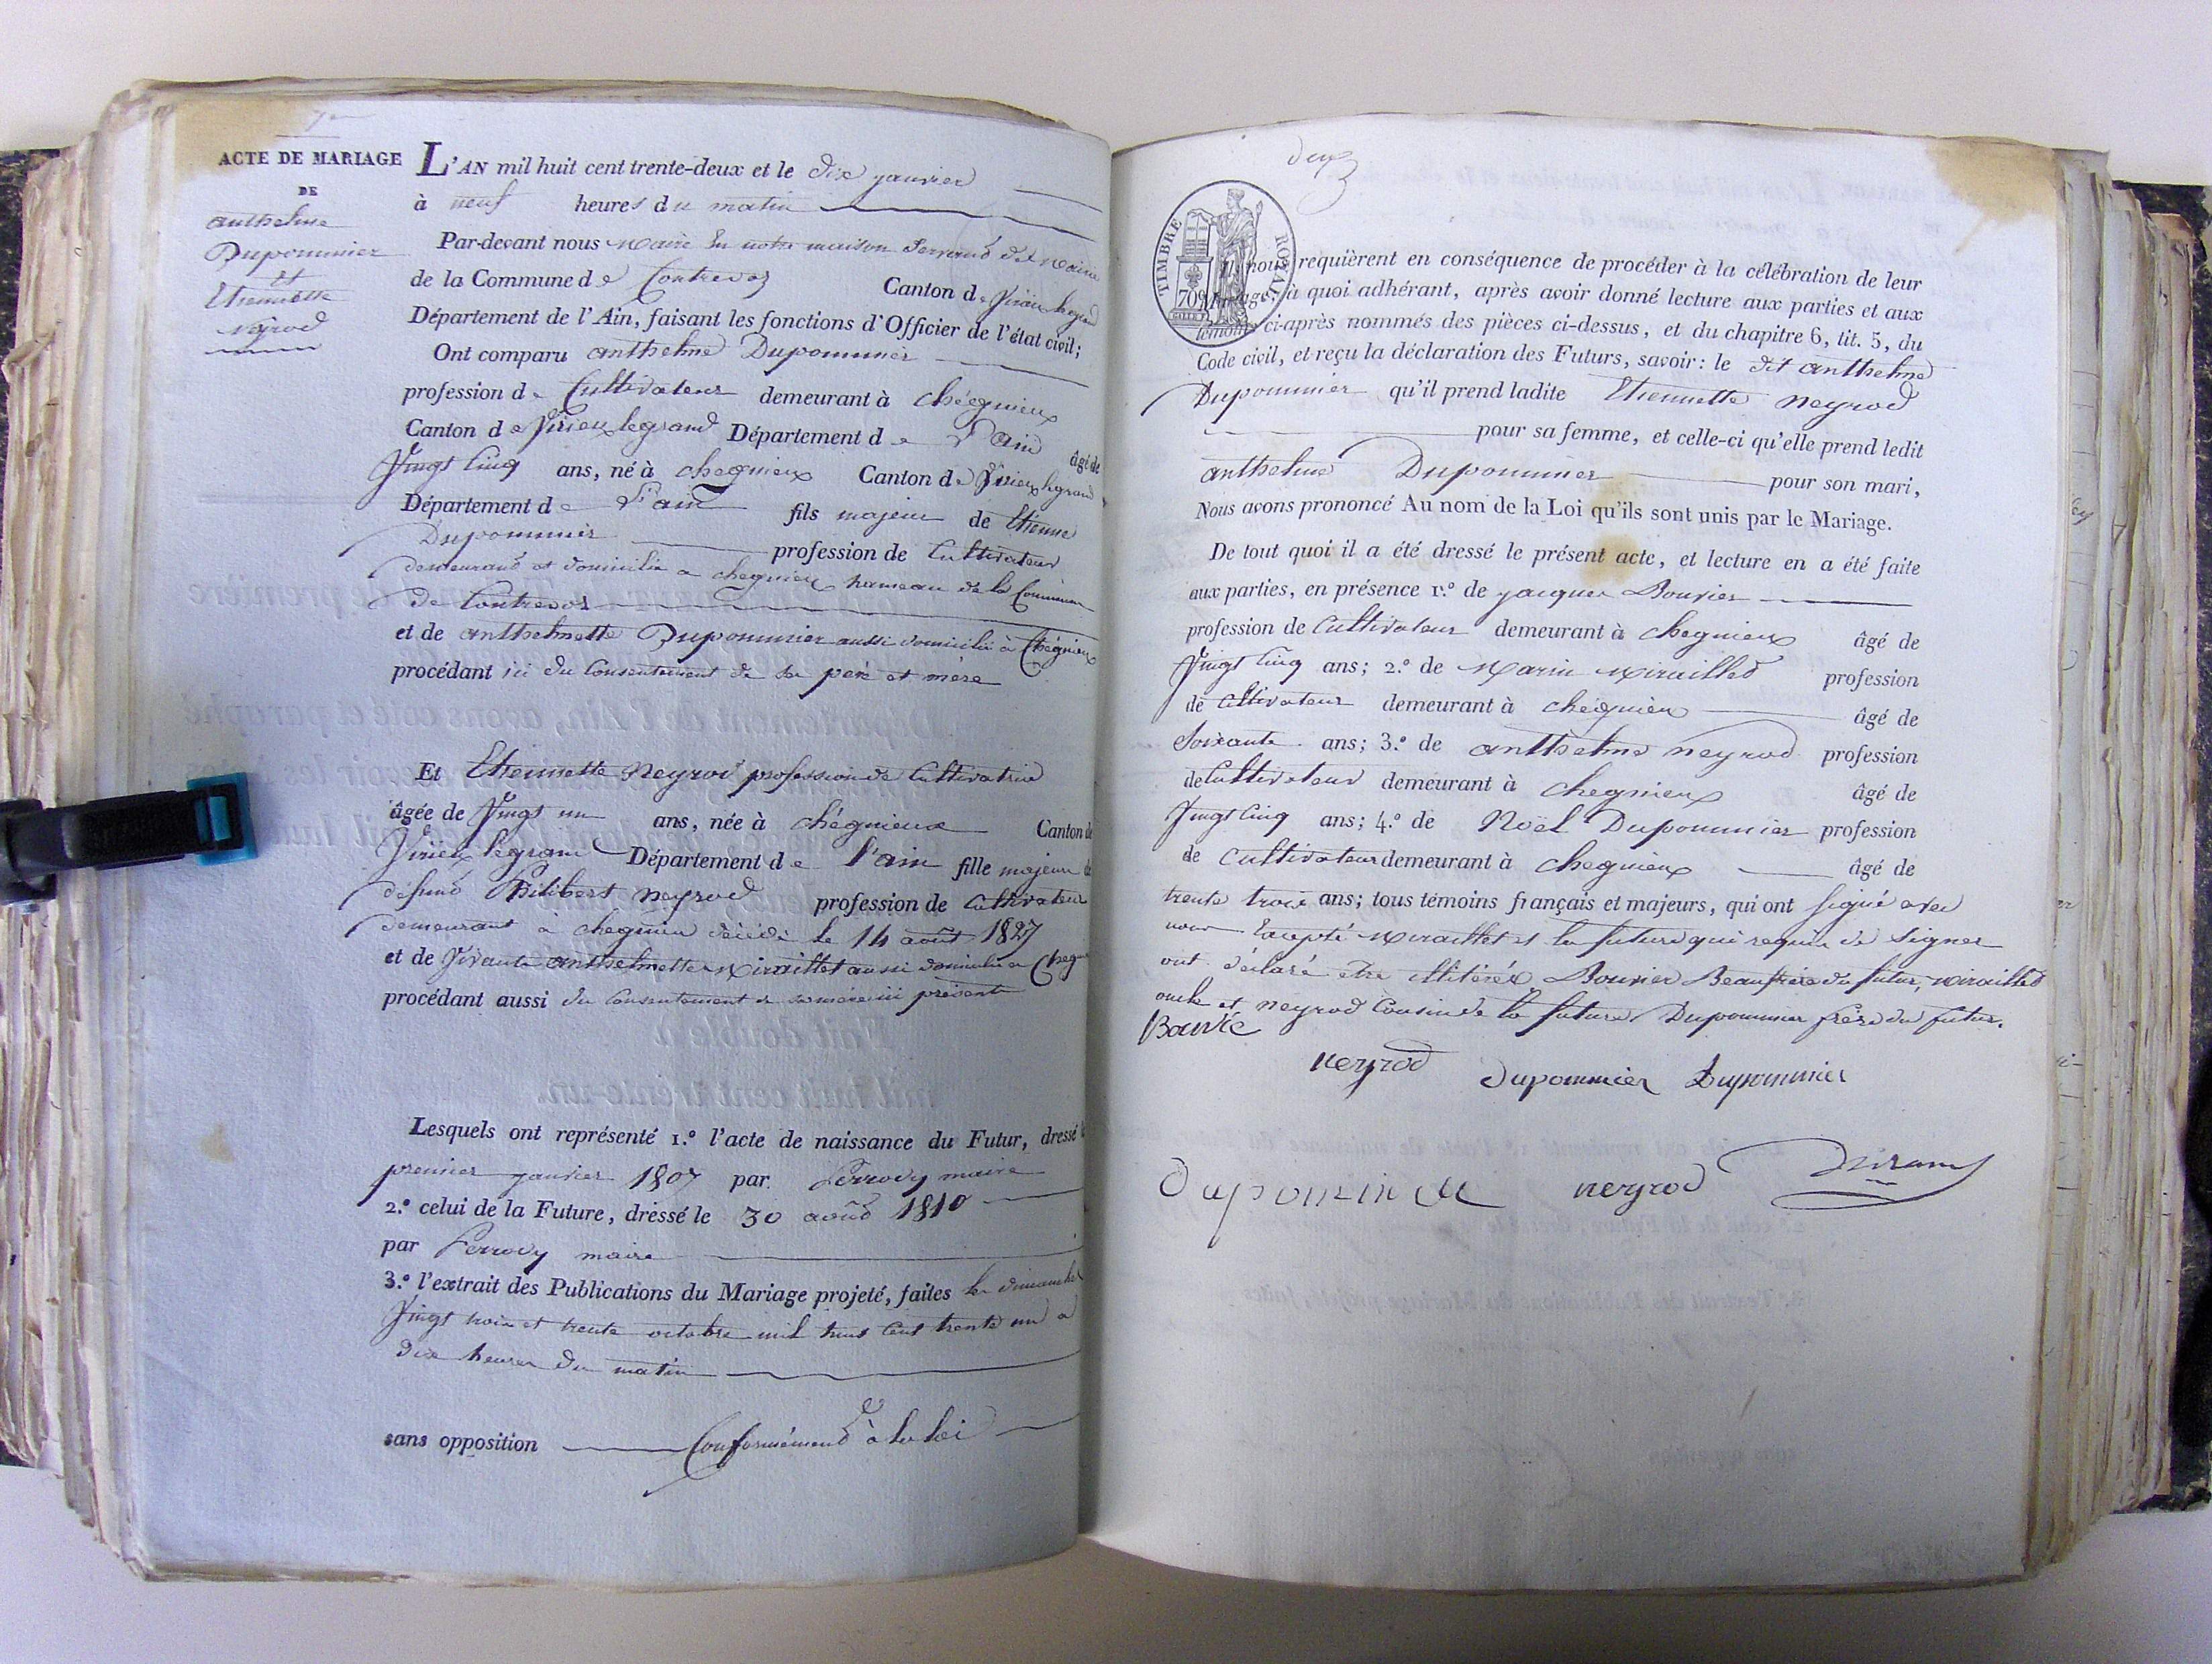 ACTE DE MARIAGE
DE
anthelme
Dupommier
et
Etiennette
neyrod
L'AN mil huit cent trente-deux et le dix janvier
à neuf heures du matin
Par-devant nous maire en notre maison
de la Commune de Contrevoz Canton de Virieu legrand
Département de l'Ain, faisant les fonctions d'Officier de l'état civil;
Ont comparu anthelme Dupommier
profession de Cultivateur demeurant à chégnieux
Canton de Virieux legrand Département de l'ain âgé de
Vingt Cinq ans, né à chegnieux Canton de Virieux legrand
Département de l'ain fils majeur de Etienne
Dupommier profession de Cultivateur
demeurant et domicilié a chegnieux hameau de la Commune
de Contrevoz
et de anthelmette Dupommier aussi domicilié à Chégnieux
procédant ici du Consentement de se père et mère
Et Etiennette Neyrod profession de Cultivatrice
âgée de Vingt un ans, née à chégnieux Canton de
Virieux legrand Département de l'ain fille majeure de
défunt Philibert neyrod profession de Cultivateur
demeurant à chegnieu décédé le 14 août 1827
et de Vivante anthelmette miraillet aussi domicilié a Chegn
procédant aussi du Consentement de sa mère ici présente
Lesquels ont représenté 1.° l'acte de naissance du Futur, dressé le
premier janvier 1807 par Perrody maire
2.° celui de la Future, dressé le 30 août 1810
par Perrody maire
3.° l'extrait des Publications du Mariage projeté, faites les dimanches
Vingt trois et trente octobre mil huit Cent trente un a
dix heures du matin
sans opposition Conformément à la loi
deux
TIMBRE ROYAL
70
Ils nous requièrent en conséquence de procéder à la célébration de leur
Mariage; à quoi adhérant, après avoir donné lecture aux parties et aux
témoins ci-après nommés des pièces ci-dessus, et du chapitre 6, tit. 5, du
Code civil, et reçu la déclaration des Futurs, savoir: le dit anthelme
Dupommier qu'il prend ladite Etiennette neyrod
pour sa femme, et celle-ci qu'elle prend ledit
anthelme Dupommier pour son mari,
Nous avons prononcé Au nom de la Loi qu'ils sont unis par le Mariage.
De tout quoi il a été dressé le présent acte, et lecture en a été faite
aux parties, en présence 1.° de jacques Bouvier
profession de Cultivateur demeurant à chegnieux âgé de
Vingt Cinq ans; 2.° de Marin Miraillet profession
de Cultivateur demeurant à chégnieu âgé de
Soixante ans; 3.° de anthelme neyrod profession
de Cultivateur demeurant à chegnieux âgé de
Vingt Cinq ans; 4.° de Noël Dupommier profession
de Cultivateur demeurant à chegnieux âgé de
trente trois ans; tous témoins français et majeurs, qui ont signé avec
nous Excepté Miraillet et la future qui requis de signer
ont déclaré être illitérés Bouvier Beaufrère du futur, miraillet
oncle et neyrod Cousin de la future Dupommier frère du futur.
Bouvié
neyrod dupommier Dupommier
neyrod